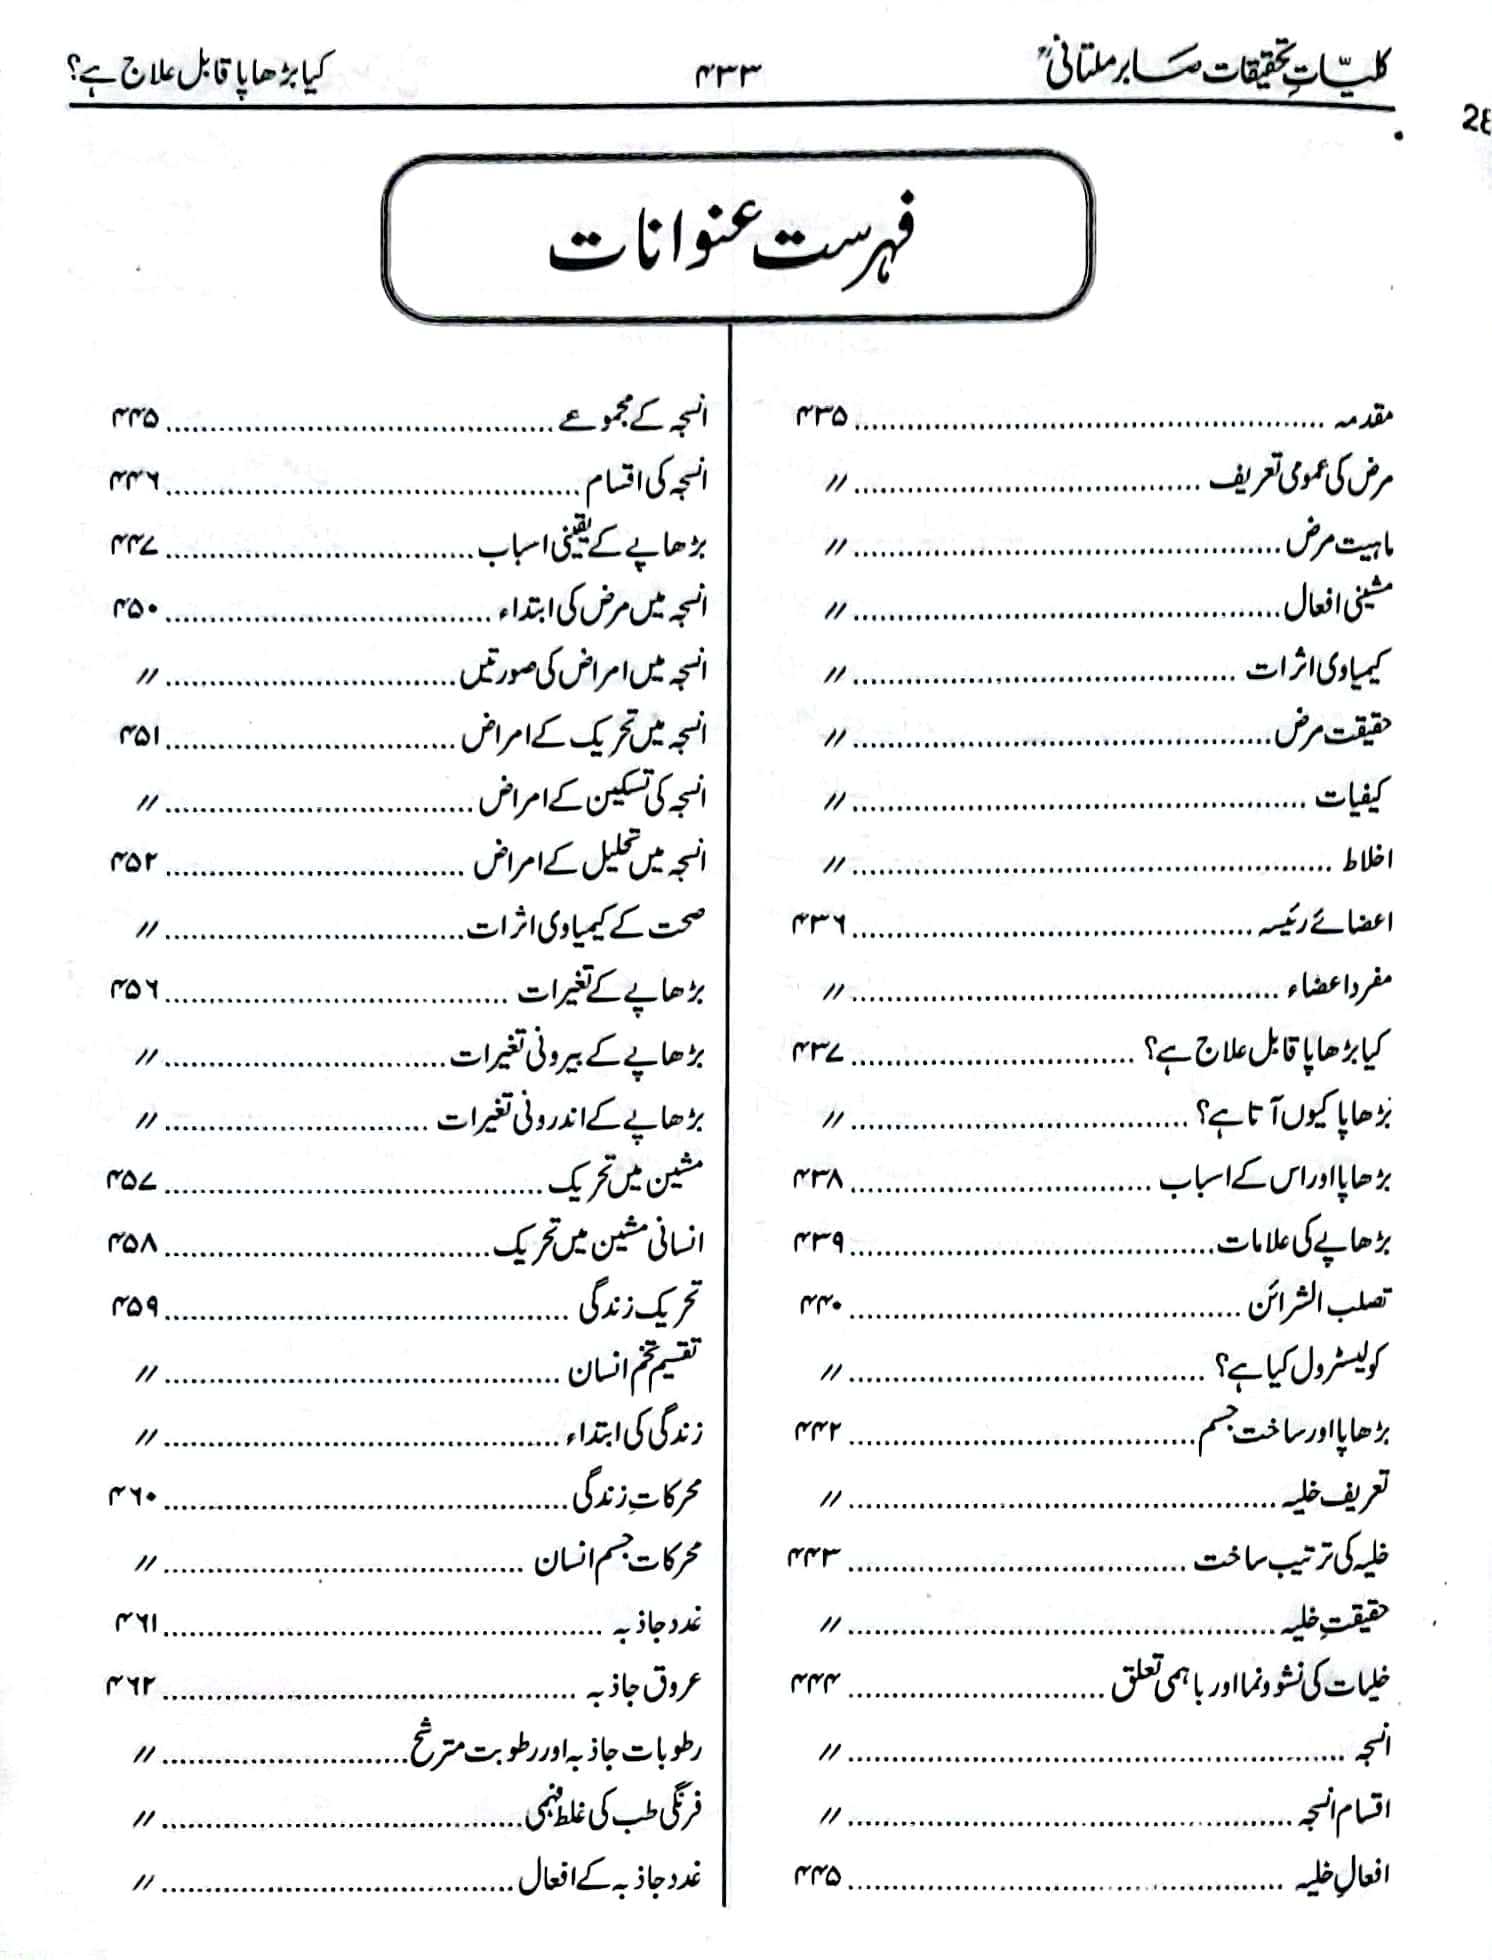 کلیّاتِ تحقیقات صابر ملتانیؒ ۴۳۳ کیا بڑھاپا قابل علاج ہے؟
فہرست عنوانات
مقدمہ ۴۳۵
مرض کی عمومی تعریف //
ماہیت مرض //
مشینی افعال //
کیمیاوی اثرات //
حقیقت مرض //
کیفیات //
اخلاط //
اعضائے رئیسہ ۴۳۶
مفرد اعضاء //
کیا بڑھاپا قابل علاج ہے؟ ۴۳۷
بڑھاپا کیوں آتا ہے؟ //
بڑھاپا اور اس کے اسباب ۴۳۸
بڑھاپے کی علامات ۴۳۹
تصلب الشرائن ۴۴۰
کولیسٹرول کیا ہے؟ //
بڑھاپا اور ساخت جسم ۴۴۲
تعریف خلیہ //
خلیہ کی ترتیب ساخت ۴۴۳
حقیقتِ خلیہ //
خلیات کی نشوونما اور باہمی تعلق ۴۴۴
انسجہ //
اقسام انسجہ //
افعالِ خلیہ ۴۴۵
انسجہ کے مجموعے ۴۴۵
انسجہ کی اقسام ۴۴۶
بڑھاپے کے یقینی اسباب ۴۴۷
انسجہ میں مرض کی ابتداء ۴۵۰
انسجہ میں امراض کی صورتیں //
انسجہ میں تحریک کے امراض ۴۵۱
انسجہ کی تسکین کے امراض //
انسجہ میں تحلیل کے امراض ۴۵۲
صحت کے کیمیاوی اثرات //
بڑھاپے کے تغیرات ۴۵۶
بڑھاپے کے بیرونی تغیرات //
بڑھاپے کے اندرونی تغیرات //
مشین میں تحریک ۴۵۷
انسانی مشین میں تحریک ۴۵۸
تحریک زندگی ۴۵۹
تقسیم تخم انسان //
زندگی کی ابتداء //
محرکاتِ زندگی ۴۶۰
محرکات جسم انسان //
غدد جاذبہ ۴۶۱
عروق جاذبہ ۴۶۲
رطوبات جاذبہ اور رطوبت مترشح //
فرنگی طب کی غلط فہمی //
غدد جاذبہ کے افعال //